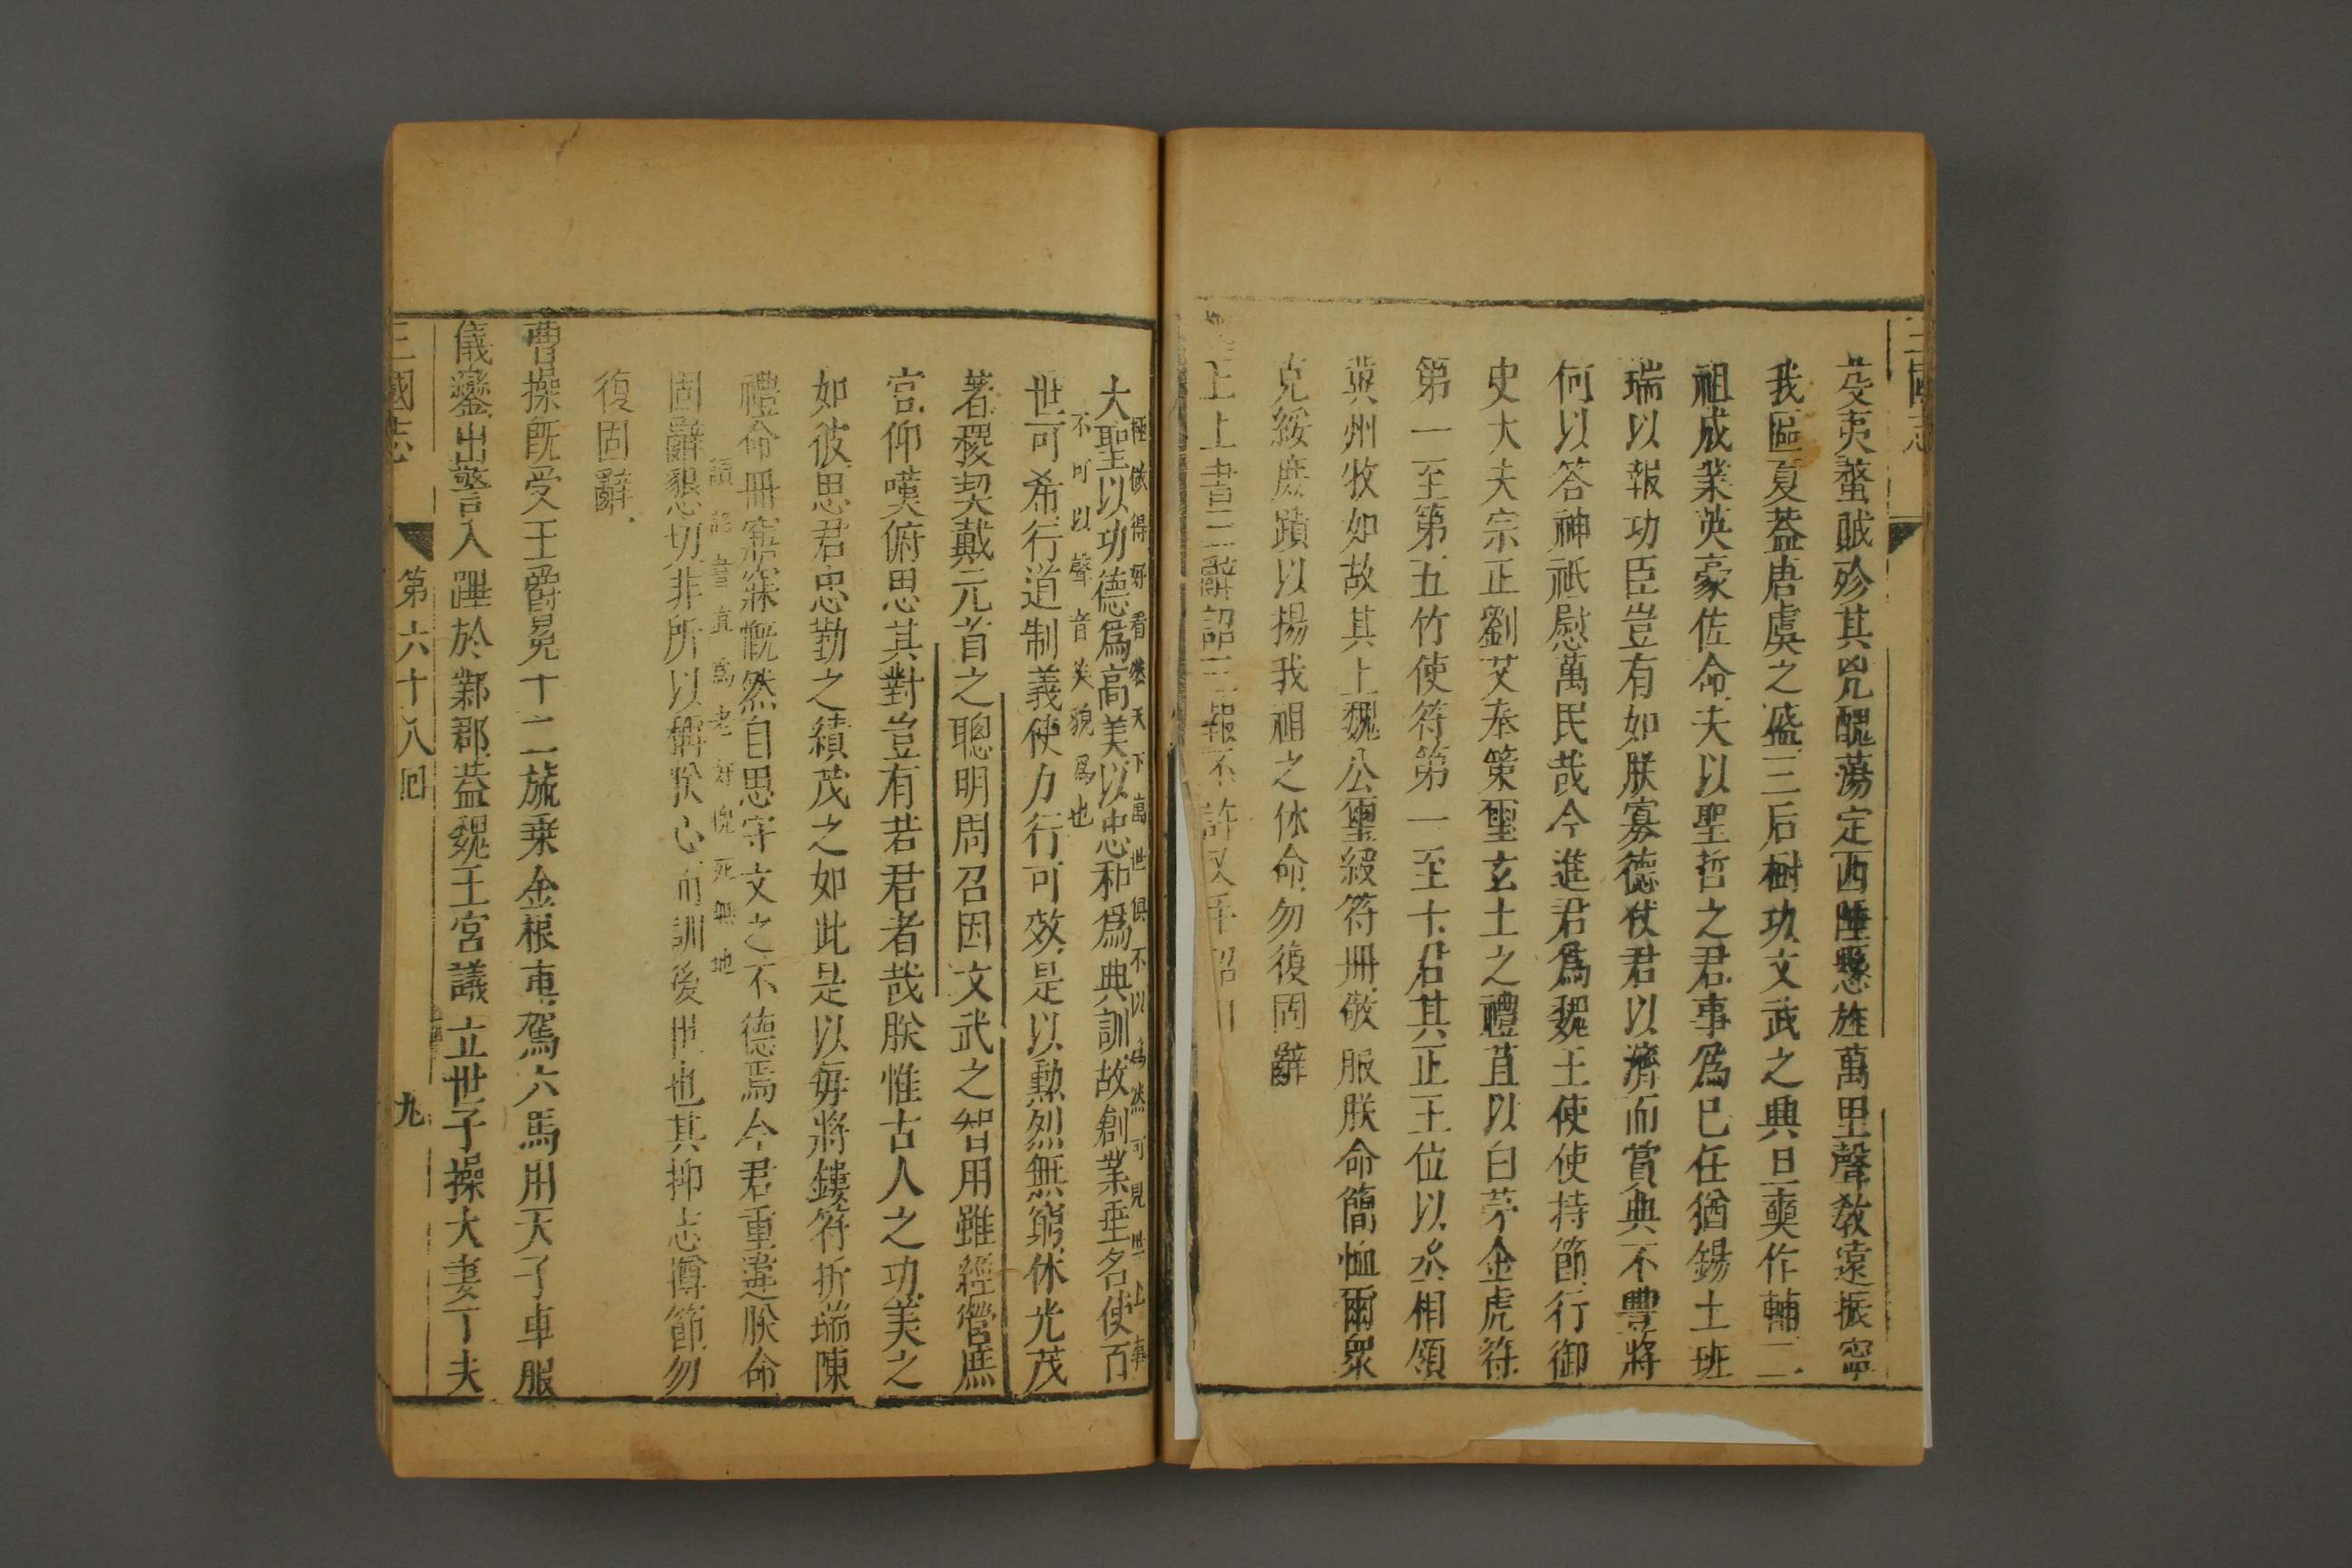 三國志
芟夷蝥賊殄其兇醜蕩定西陲懸旌萬里聲教遠振寧
我區夏葢唐虞之盛三后樹功文武之興旦奭作輔二
祖成業英豪佐命夫以聖哲之君事爲已任猶錫土班
瑞以報功臣豈有如朕寡德仗君以濟而賞典不豐將
何以答神祇慰萬民哉今進君爲魏王使使持節行御
史大夫宗正劉艾奉策璽玄土之禮苴以白茅金虎符
第一至第五竹使符第一至十君其正王位以丞相領
兾州牧如故其上魏公璽綬符冊敬服朕命簡恤爾衆
克綏庶蹟以揚我祖之休命勿復固辭
上上書三辭詔三報不許又手詔曰
極做得好看然天下萬世俱不以爲然可見世上事
大聖以功德爲高美以忠和爲典訓故創業垂名使百
不可以聲音笑貌爲也
世可希行道制義使力行可效是以勲烈無窮休光茂
著稷契戴元首之聰明周召因文武之智用雖經營庶
官仰嘆俯思其對豈有若君者哉朕惟古人之功美之
如彼思君忠勤之績茂之如此是以每將鏤符折瑞陳
禮命冊寤寐慨然自思守文之不德焉今君重違朕命
讀詔書直爲老奸愧死無地
固辭懇切非所以稱朕心而訓後世也其抑志撙節勿
復固辭
曹操旣受王爵冕十二旒乗金根車駕六馬用天子車服
儀鑾出警入蹕於鄴郡葢魏王宮議立世子操大妻丁夫
三國志
第六十八囘
九